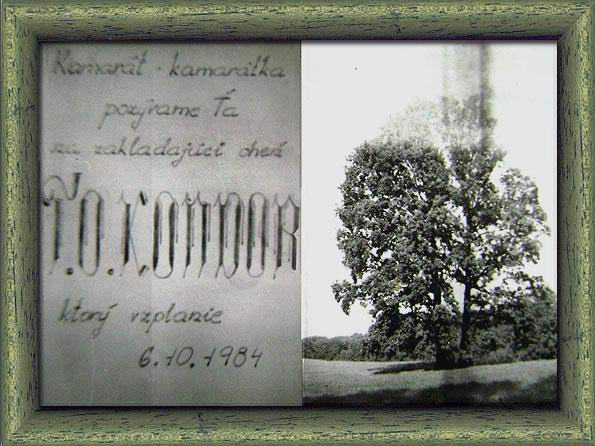 Kamarát - kamarátka
pozývame Ťa
na zakladajúci oheň
T.O.KONDOR
ktorý vzplanie
6.10.1984